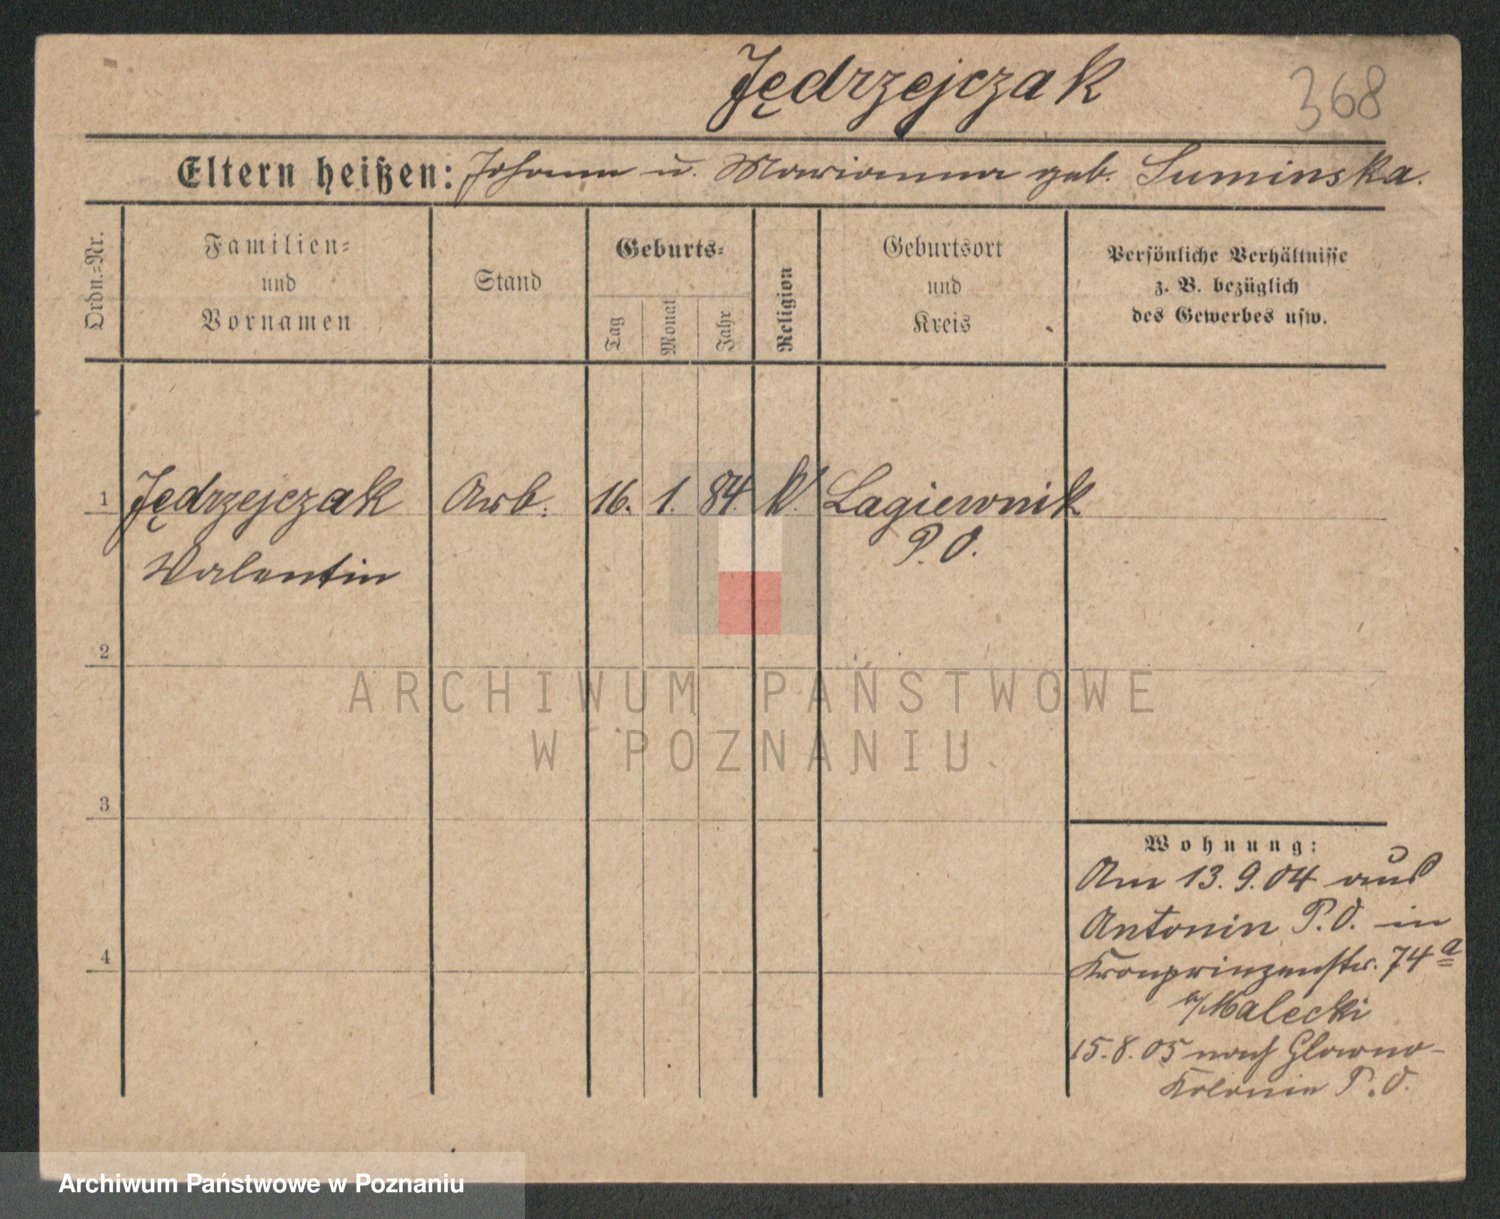 Jędrzejczak
368
Eltern heißen: Johann u. Marianna geb. Suminska.
Ordn.=Nr.
Familien=
und
Vornamen
Stand
Geburts=
Tag
Monat
Jahr
Religion
Geburtsort
und
Kreis
Persönliche Verhältnisse
z. B. bezüglich
des Gewerbes usw.
1 Jędrzejczak Arb. 16. 1. 84 k. Lagiewnik
Valentin P. O.
2
ARCHIWUM PAŃSTWOWE
W POZNANIU
3
Wohnung:
Am 13.9.04 aus
Antonin P.O. in
4
Kronprinzenstr. 74 a
b/Malecki
15.8.05 nach Glowno-
Kolonie P.O.
Archiwum Państwowe w Poznaniu